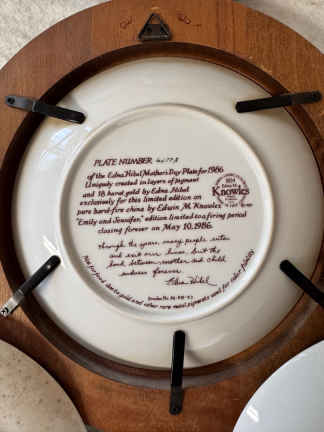 PLATE NUMBER
of the Edna Hibel Mother's Day Plate for 1986
Uniquely created in layers of pigment
and 18 karat gold by Edna Hibel
exclusively for this limited edition on
pure hard-fire china by Edwin M. Knowles
"Emily and Jennifer," edition limited to a firing period
closing forever on May 10, 1986.
Knowles
Through the years many people enter
and exit our lives but the
bond between mother and child
endures forever.
Edna Hibel
Not for food use
gold and other rare metal pigments used for color fidelity